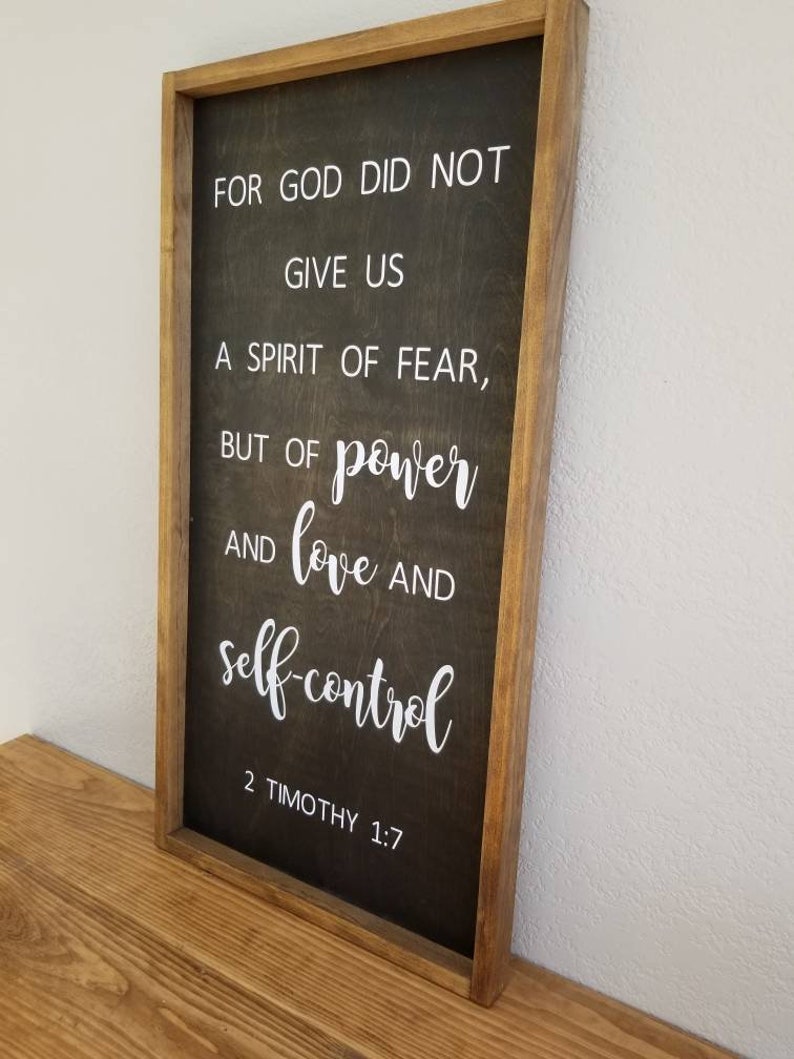 FOR GOD DID NOT
GIVE US
A SPIRIT OF FEAR,
BUT OF power
AND love AND
self-control
2 TIMOTHY 1:7